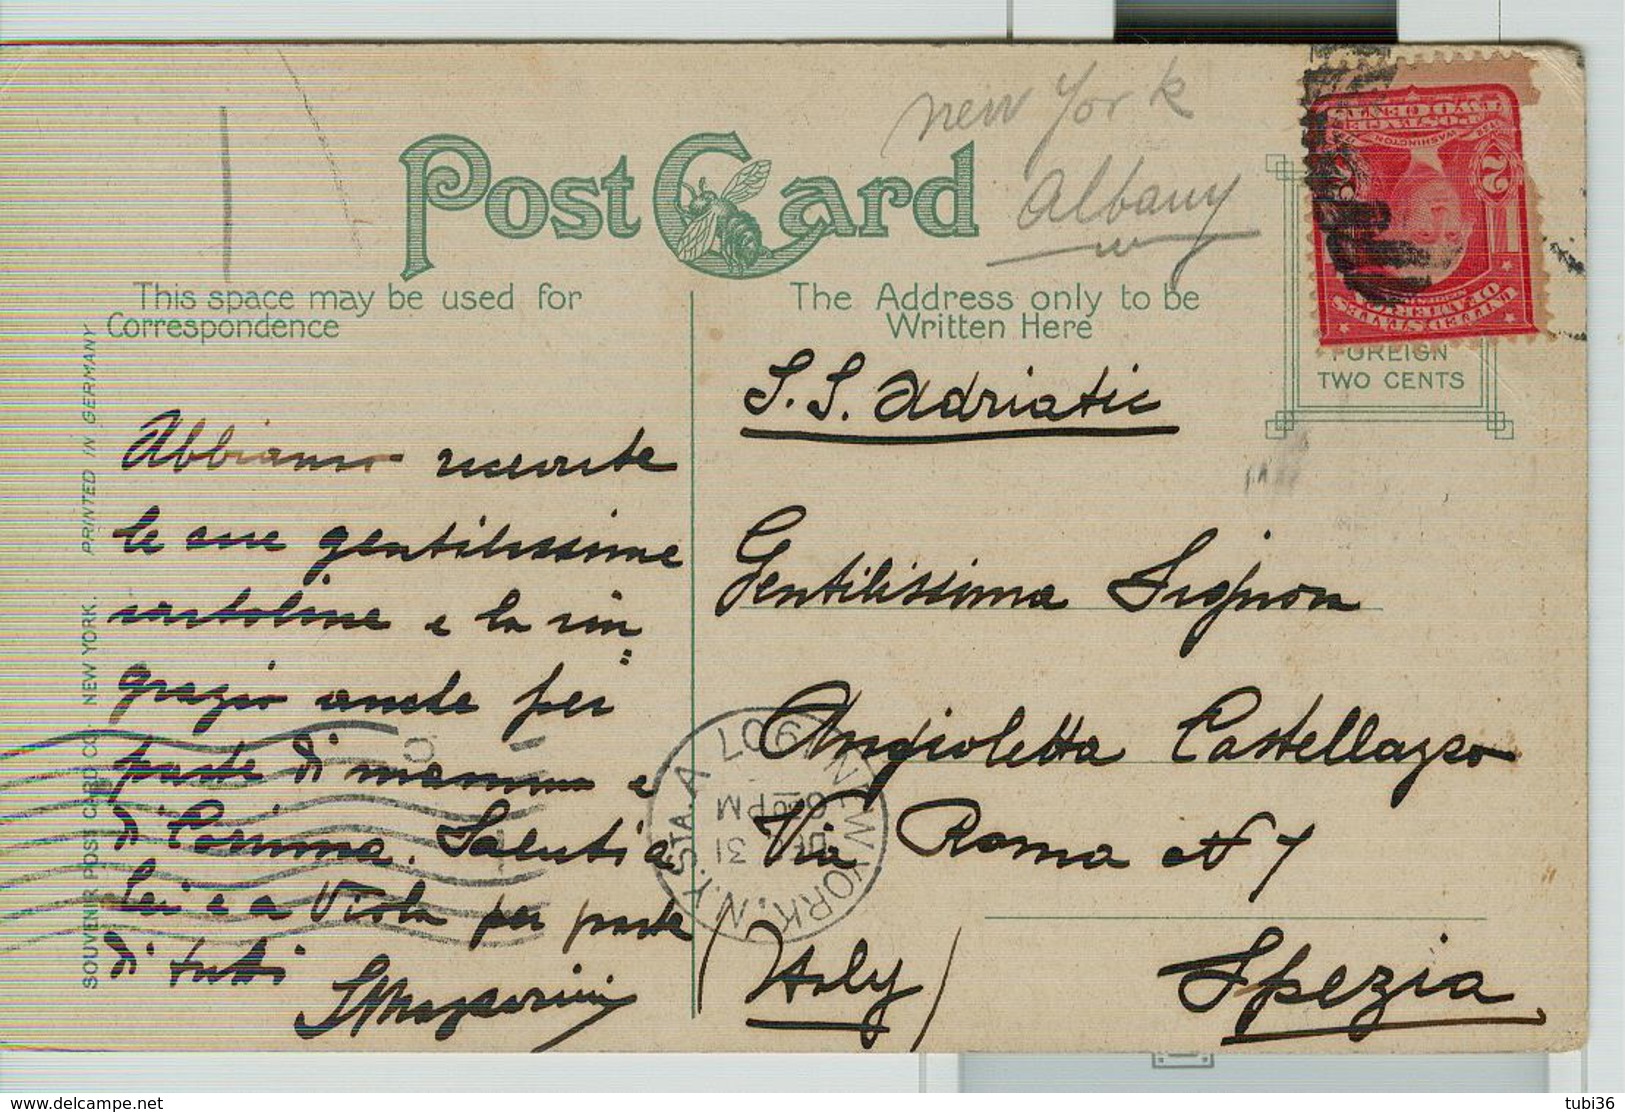 new York
Albany
Post Card
This space may be used for
Correspondence
The Address only to be
Written Here
FOREIGN
TWO CENTS
2
2
POSTAGE
TWO CENTS
WASHINGTON
UNITED STATES
OF AMERICA
SOUVENIR POST CARD CO. NEW YORK. PRINTED IN GERMANY
Abbiamo ricevute
le sue gentilissime
cartoline e la rin=
grazio anche per
parte di mamma e
di Corinna. Saluti a
Lei e a Viola per parte
di tutti
S. S. Adriatic
Gentilissima Signora
Angioletta Castellazzo
Via Roma N 7
(Italy)
Spezia
NEW YORK. N.Y. STA. A
31
PM
1907
www.delcampe.net
tubi36